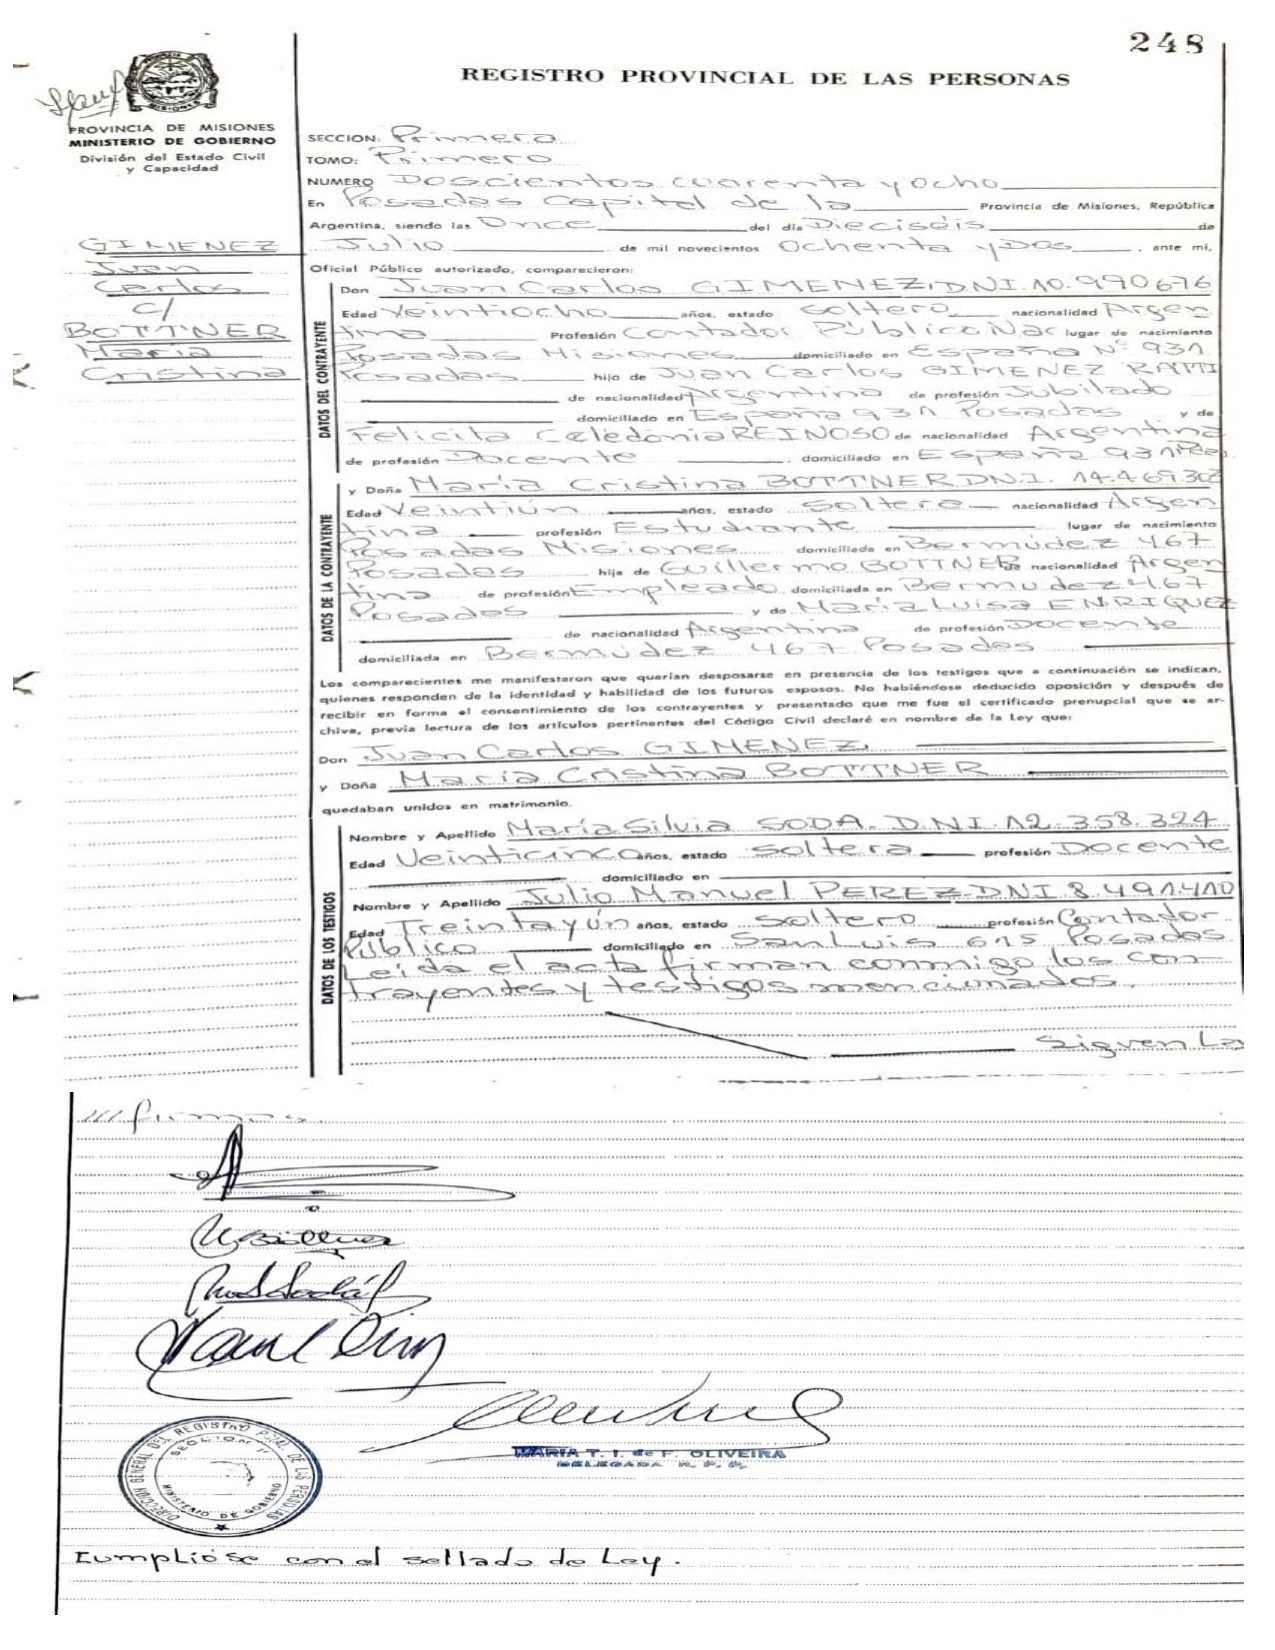 248
REGISTRO PROVINCIAL DE LAS PERSONAS
PROVINCIA DE MISIONES
MINISTERIO DE GOBIERNO
División del Estado Civil
y Capacidad
GIMENEZ
Juan
Carlos
c/
BOTTNER
María
Cristina
SECCION: Primera
TOMO: Primero
NUMERO Doscientos cuarenta y ocho
En Posadas Capital de la Provincia de Misiones, República
Argentina, siendo las Once del día Dieciséis de
Julio de mil novecientos Ochenta y Dos, ante mí,
Oficial Público autorizado, comparecieron:
DATOS DEL CONTRAYENTE
Don Juan Carlos GIMENEZ, DNI. 10.990676
Edad Veintiocho años, estado soltero nacionalidad Argen
tina Profesión Contador Público Nac lugar de nacimiento
Posadas Misiones domiciliado en España N° 931
Posadas hijo de Juan Carlos GIMENEZ RATTI
de nacionalidad Argentina de profesión Jubilado
domiciliado en España 931 Posadas y de
Felicita Celedonia REINOSO de nacionalidad Argentina
de profesión Docente domiciliado en España 931
DATOS DE LA CONTRAYENTE
y Doña María Cristina BOTTNER DN.I. 14.469.302
Edad Veintiún años, estado soltera nacionalidad Argen
tina profesión Estudiante lugar de nacimiento
Posadas Misiones domiciliada en Bermúdez 467
Posadas hija de Guillermo BOTTNER de nacionalidad Argen
tina de profesión Empleado domiciliada en Bermudez 467
Posadas y de María Luisa ENRIQUEZ
de nacionalidad Argentina de profesión Docente
domiciliada en Bermúdez 467 Posadas
Los comparecientes me manifestaron que querían desposarse en presencia de los testigos que a continuación se indican,
quienes responden de la identidad y habilidad de los futuros esposos. No habiéndose deducido oposición y después de
recibir en forma el consentimiento de los contrayentes y presentado que me fue el certificado prenupcial que se ar-
chiva, previa lectura de los artículos pertinentes del Código Civil declaré en nombre de la Ley que:
Don Juan Carlos GIMENEZ,
y Doña María Cristina BOTTNER
quedaban unidos en matrimonio.
DATOS DE LOS TESTIGOS
Nombre y Apellido María Silvia SODA. D.N.I. 12.358.324
Edad Veinticinco años, estado soltera profesión Docente
domiciliado en
Nombre y Apellido Julio Manuel PEREZ DNI 8.491.410
Edad Treinta y ún años, estado soltero profesión Contador
Público domiciliado en San Luis 615 Posadas
Leída el acta firman conmigo los con-
trayentes y testigos mencionados.
Siguen La
/// firmas.
MARIA T. I. de F. OLIVEIRA
DELEGADA R. P. P.
DIRECCION GENERAL DEL REGISTRO PCIAL. DE LAS PERSONAS
SECCION 1ª
MINISTERIO DE GOBIERNO
Cumplióse con el sellado de Ley.